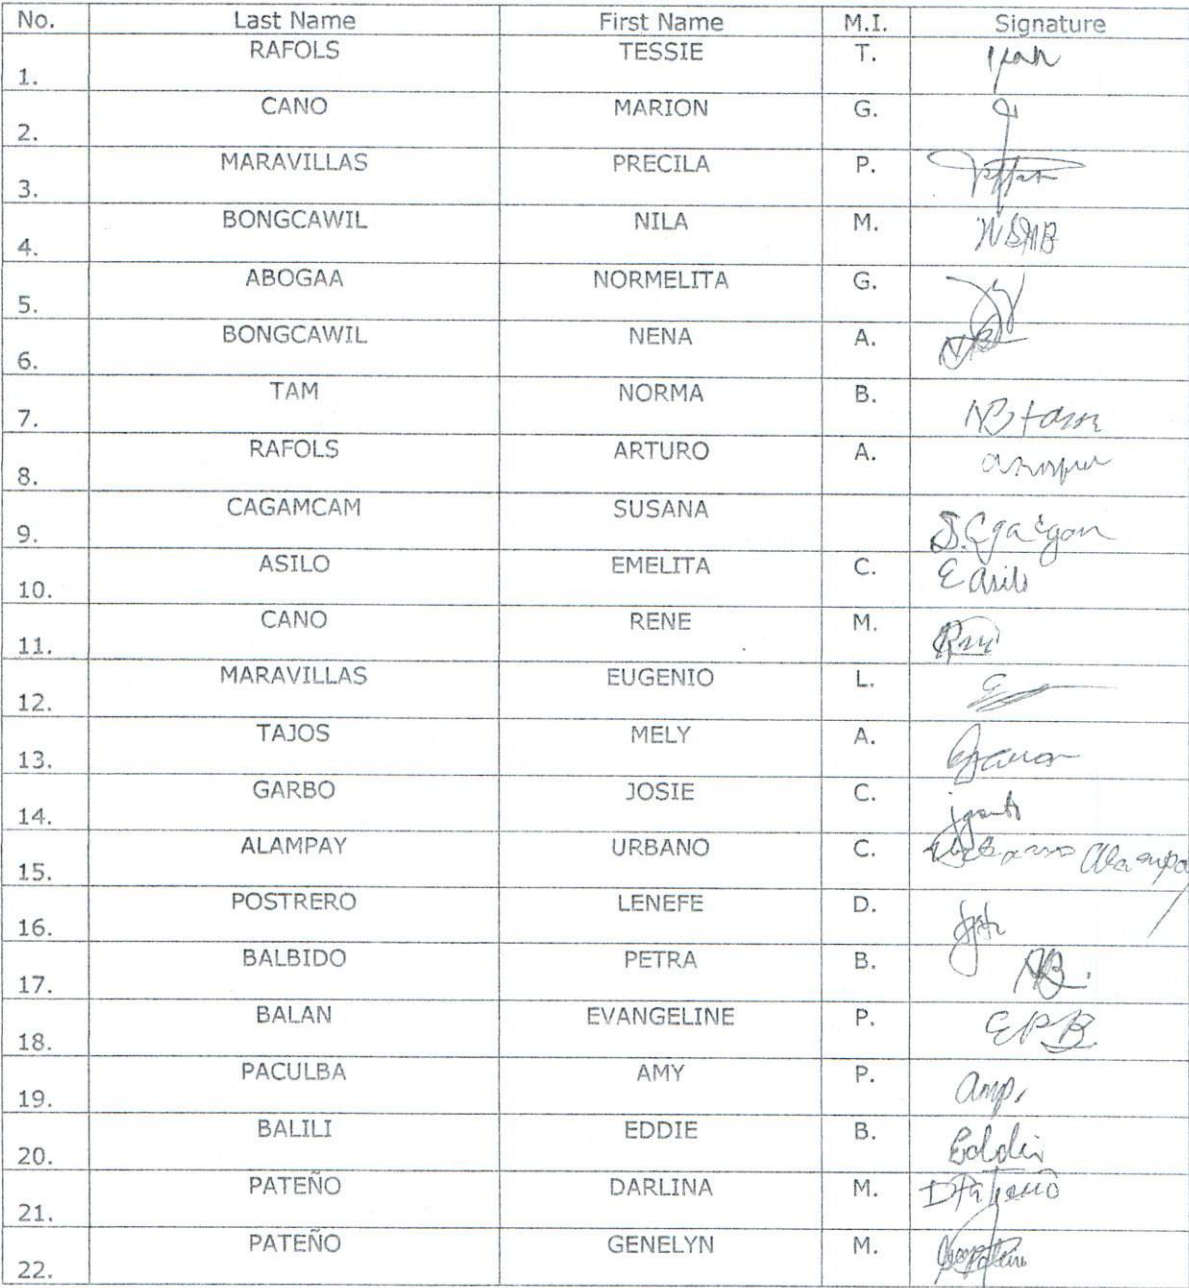 No. Last Name First Name M.I. Signature
1. RAFOLS TESSIE T.
2. CANO MARION G.
3. MARAVILLAS PRECILA P.
4. BONGCAWIL NILA M.
5. ABOGAA NORMELITA G.
6. BONGCAWIL NENA A.
7. TAM NORMA B. NB tam
8. RAFOLS ARTURO A.
9. CAGAMCAM SUSANA
10. ASILO EMELITA C. E Asilo
11. CANO RENE M.
12. MARAVILLAS EUGENIO L.
13. TAJOS MELY A.
14. GARBO JOSIE C.
15. ALAMPAY URBANO C.
16. POSTRERO LENEFE D.
17. BALBIDO PETRA B.
18. BALAN EVANGELINE P. EPB
19. PACULBA AMY P. Amp.
20. BALILI EDDIE B.
21. PATEÑO DARLINA M. DPateño
22. PATEÑO GENELYN M.